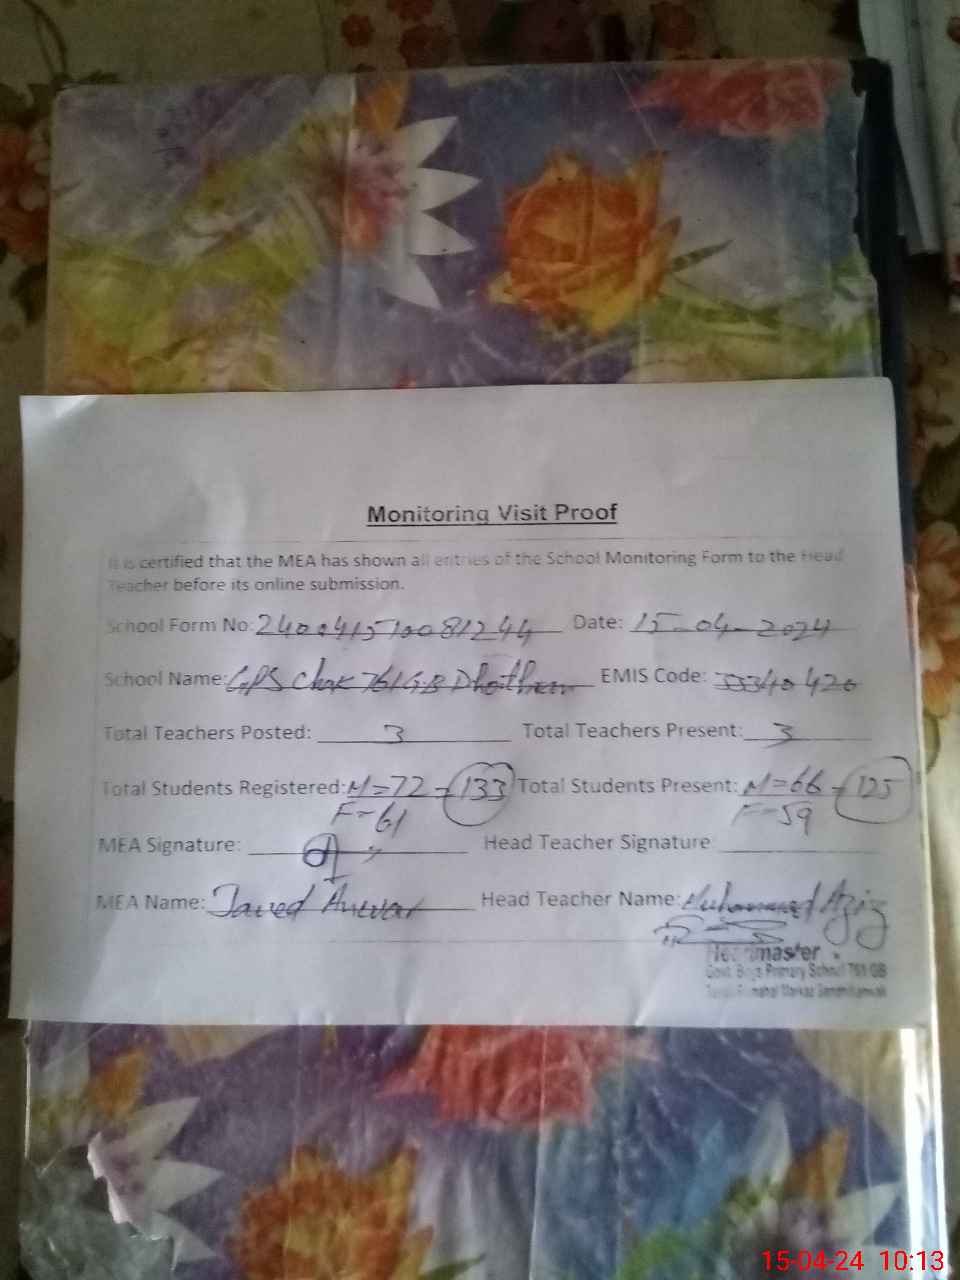 Monitoring Visit Proof
It is certified that the MEA has shown all entries of the School Monitoring Form to the Head
Teacher before its online submission.
School Form No: 240041510081244 Date: 15-04-2024
School Name: GPS Chak 761 G.B EMIS Code: 33340420
Total Teachers Posted: 3 Total Teachers Present: 3
Total Students Registered: M=72 - 133 Total Students Present: M=66 - 125
F=61 F=59
MEA Signature: Head Teacher Signature
MEA Name: Javed Anwar Head Teacher Name: Muhammad Aziz
Headmaster
Govt. Boys Primary School 761 GB
15-04-24 10:13